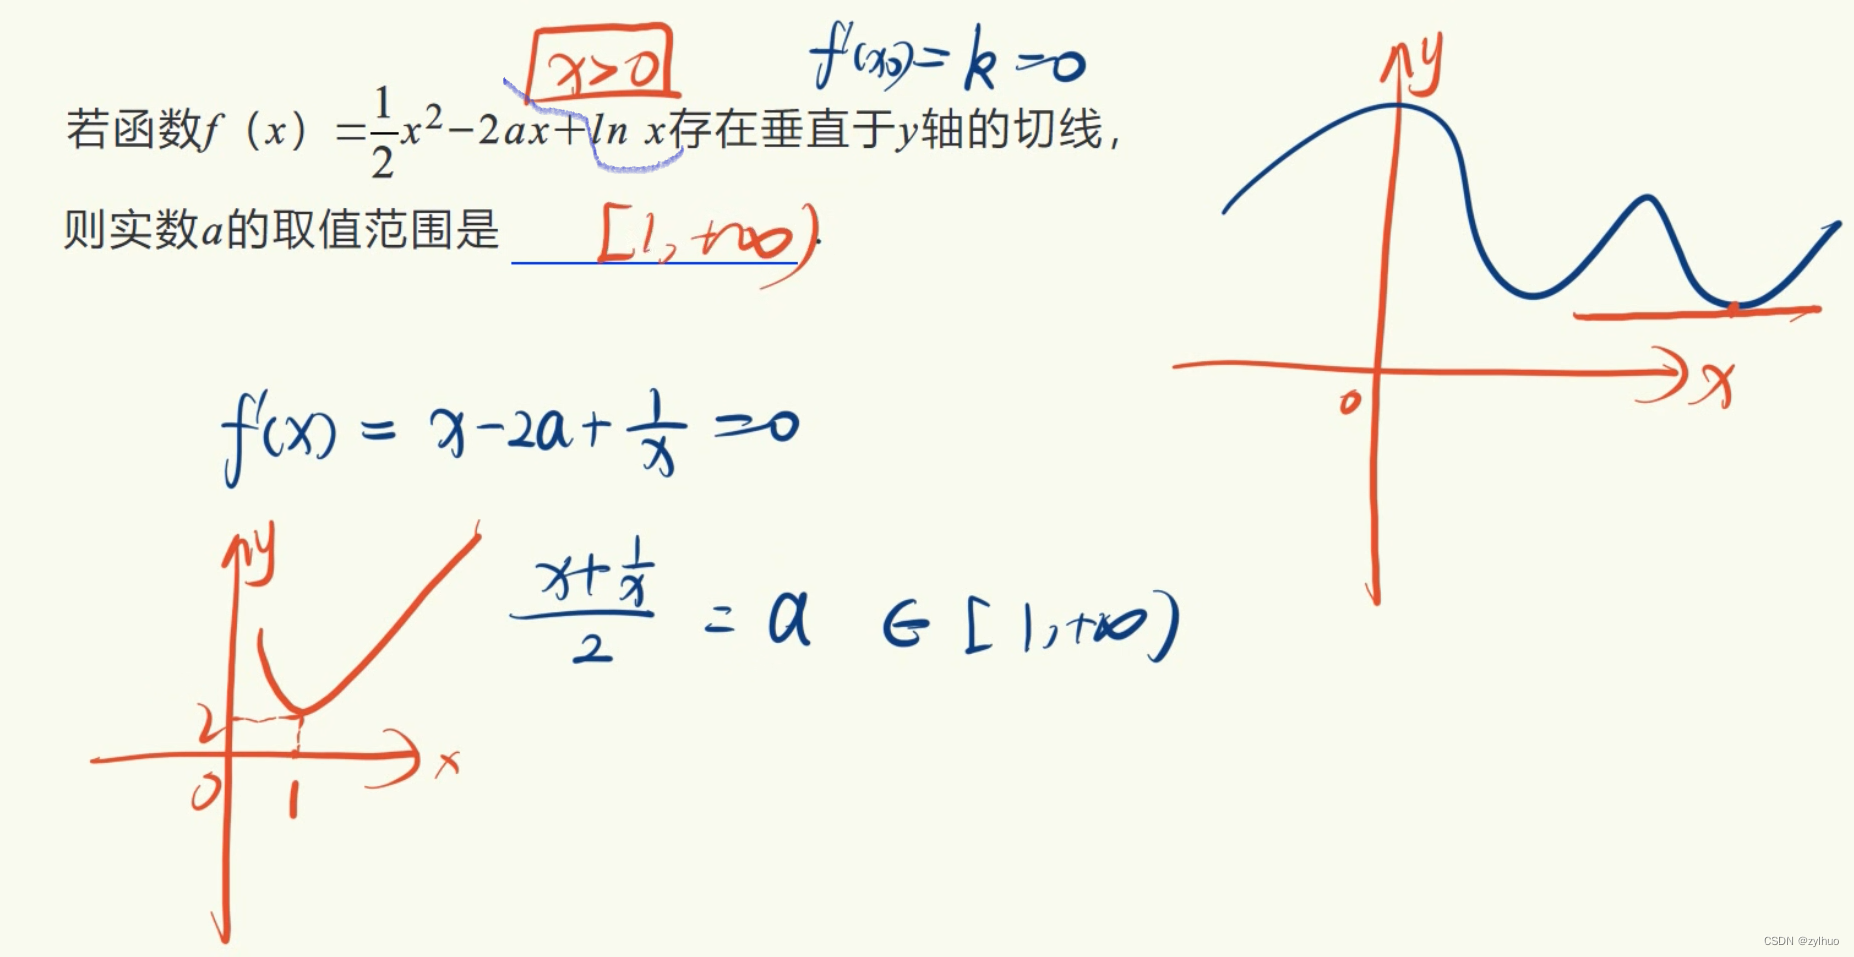 x>0
f'(x₀)=k=0
若函数f（x）=\frac{1}{2}x²-2ax+ln x存在垂直于y轴的切线，
则实数a的取值范围是 [1,+∞).
y
x
0
f'(x)=x-2a+\frac{1}{x}=0
y
\frac{x+\frac{1}{x}}{2}=a∈[1,+∞)
2
x
0
1
CSDN @zylhuo